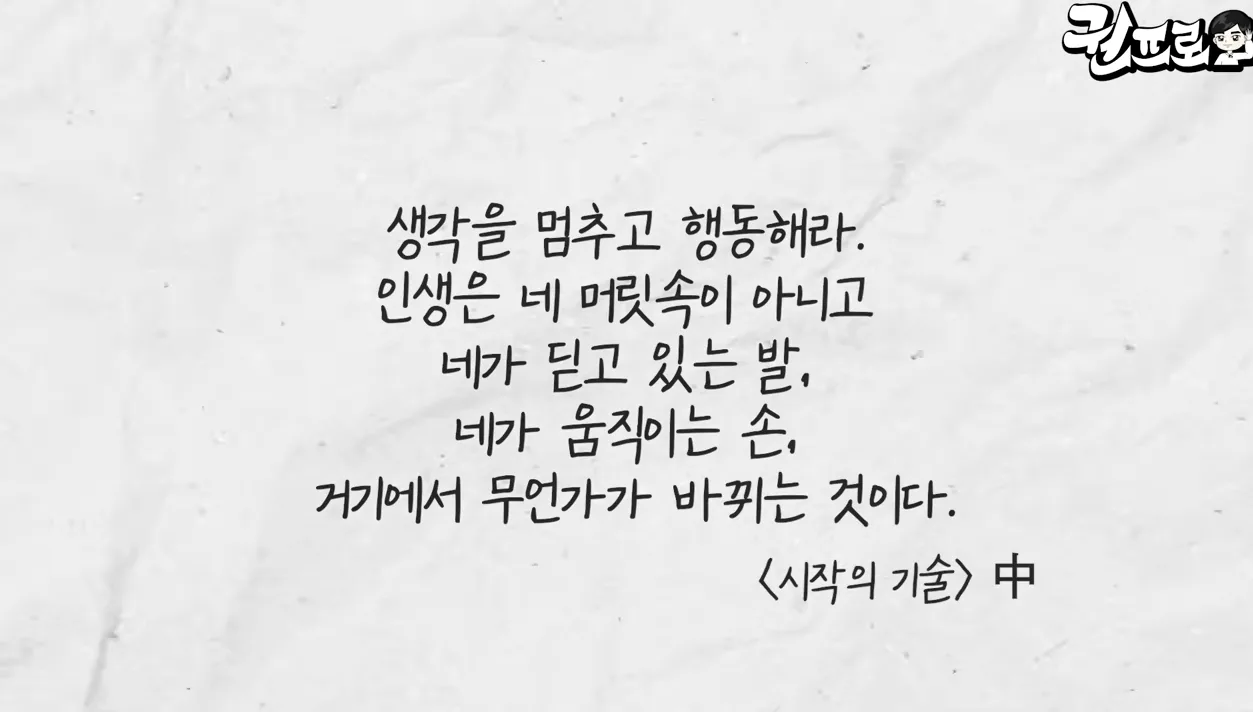 권프로
생각을 멈추고 행동해라.
인생은 네 머릿속이 아니고
네가 딛고 있는 발,
네가 움직이는 손,
거기에서 무언가가 바뀌는 것이다.
〈시작의 기술〉 中